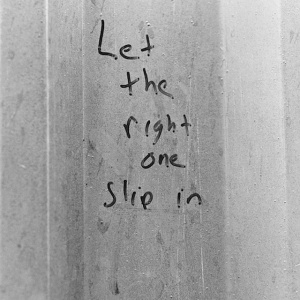 Let
the
right
one
slip in